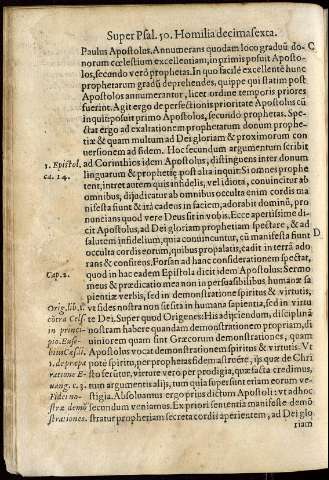 Super Psal. 50. Homilia decimasexta.
Paulus Apostolus. Annumerans quodam loco graduũ do-
C
norum cœlestium excellentiam, in primis posuit Aposto-
los, secundo verò prophetas. In quo facilè excellentẽ hunc
prophetarum gradũ deprehendes, quippe qui statim post
Apostolos annumerantur, licet ordine temporis priores
fuerint. Agit ergo de perfectionis prioritate Apostolus cũ
inquit: posuit primo Apostolos, secundò prophetas. Spe-
ctat ergo ad exaltationem prophetarum donum prophe-
tiæ & quam multum ad Dei gloriam & proximorum con
uersionem ad fidem. Hoc secundum argumentum scribit
1. Epistol.
ad Corinthios idem Apostolus, distinguens inter donum
ca. 14.
linguarum & prophetię post alia inquit: Si omnes prophe
tent, intret autem quis infidelis, vel idiota, conuincitur ab
omnibus, dijudicatur ab omnibus occulta enim cordis ma
nifesta fiunt & ita cadens in faciem, adorabit dominũ, pro
nuncians quod vere Deus sit in vobis. Ecce apertissime di-
cit Apostolus, ad Dei gloriam prophetiam spectare, & ad
D
salutem infidelium, quia conuincuntur, cũ manifesta fiunt
occulta cordis eorum, quibus propalatis, cadit in terrã ado
rans & confitens. Forsan ad hanc considerationem spectat,
Cap. 2.
quod in hac eadem Epistola dicit idem Apostolus: Sermo
meus & prædicatio mea non in persuasibilibus humanæ sa
pientiæ verbis, sed in demonstratione spiritus & virtutis,
Orig. lib. 1.
vt fides nostra non sit sita in humana sapientia, sed in virtu
cõtra Cels.
te Dei. Super quod Origenes: His adijciendum, disciplinã
in princi-
nostram habere quandam demonstrationem propriam, di
pio. Euse-
uiniorem quam sint Græcorum demonstrationes, quam
bium Cæsa.
Apostolus vocat demonstrationem spiritus & virtutis. Vt
1. de præpa
pote spiritu, per prophetas fidem astruẽte, ijs quæ de Chri
ratione E-
sto feruntur, virtute vero per prodigia, quæ facta credimus,
uang. c. 3.
tum argumentis alijs, tum quia supersunt etiam eorum ve-
Fidei no-
stigia. Absoluamus ergo prius dictum Apostoli: vt ad hoc
stræ demõ
secundum veniamus. Ex priori sententia manifestè demõ
strationes.
stratur prophetiam secreta cordis aperientem, ad Dei glo
riam